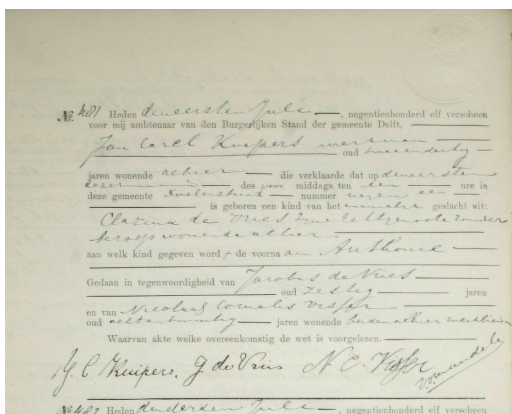 No. 481 Heden den eersten Juli, negentienhonderd elf verscheen
voor mij ambtenaar van den Burgerlijken Stand der gemeente Delft,
Jan Carel Kuipers werkman
oud tweeendertig
jaren wonende alhier die verklaarde dat op den eersten
dezer maand des voor middags ten een ure in
deze gemeente nummer een
is geboren een kind van het geslacht uit:
Clazina de Vries zijne echtgenoote zonder
beroep wonende alhier
aan welk kind gegeven word de voorna an Anthonie
Gedaan in tegenwoordigheid van Jacobus de Vries
oud zestig jaren
en van Nicolaas Cornelis Visser
oud achtentwintig jaren wonende beiden alhier werklieden
Waarvan akte welke overeenkomstig de wet is voorgelezen.
J. C. Kuipers. J de Vries N. C. Visser
No. 482 Heden den derden Juli, negentienhonderd elf verscheen